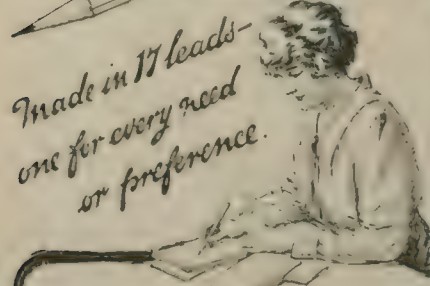 Made in 17 leads-
one for every need
or preference.